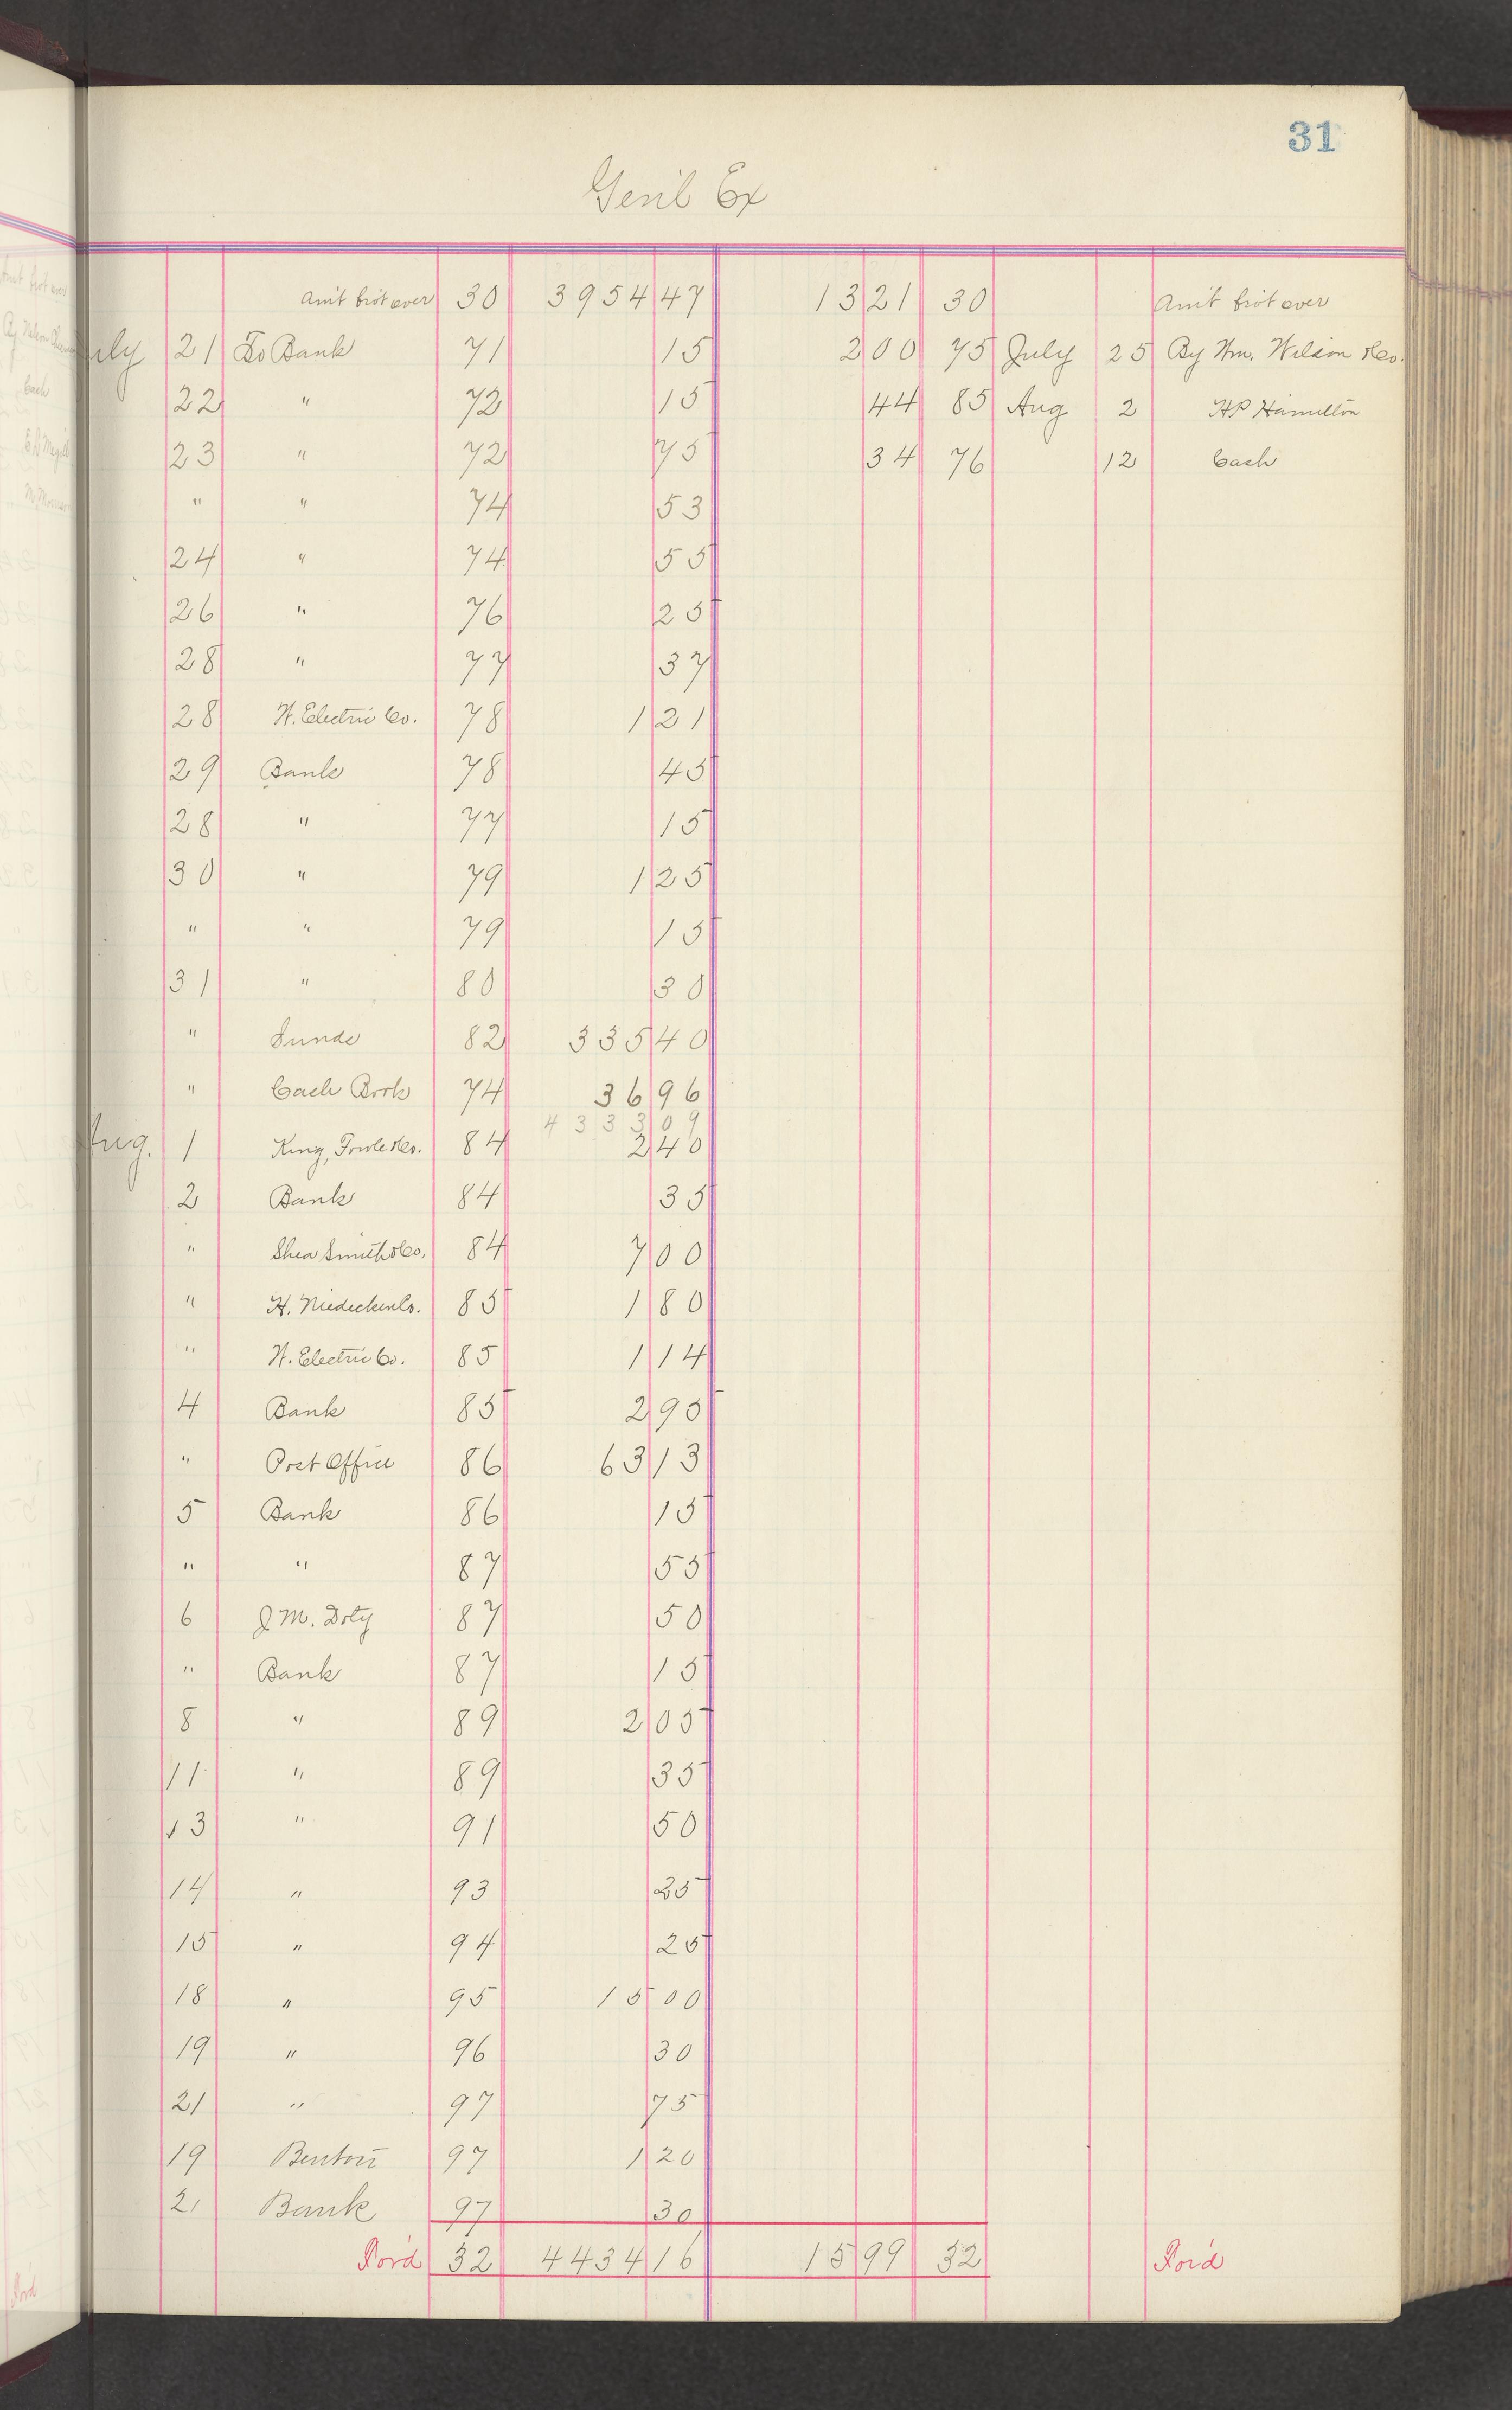 31
Gen'l Ex
Am't bro't over 30 3954 47 1321 30 Am't bro't over
July 21 To Bank 71 15 200 75 July 25 By Wm. Wilson & Co.
22 " 72 15 44 85 Aug 2 HP Hamilton
23 " 72 75 34 76 12 Cash
" " 74 53
24 " 74 55
26 " 76 25
28 " 77 37
28 W. Electric Co. 78 1 21
29 Bank 78 45
28 " 77 15
30 " 79 1 25
" " 79 15
31 " 80 30
" Sunds 82 335 40
" Cash Book 74 36 96
4333 09
Aug. 1 King, Fowle & Co. 84 2 40
2 Bank 84 35
" Shea Smith & Co. 84 7 00
" H. Niedecken Co. 85 1 80
" W. Electric Co. 85 1 14
4 Bank 85 2 95
" Post Office 86 63 13
5 Bank 86 15
" " 87 55
6 J M. Doty 87 50
" Bank 87 15
8 " 89 2 05
11 " 89 35
13 " 91 50
14 " 93 25
15 " 94 25
18 " 95 15 00
19 " 96 30
21 " 97 75
19 Benton 97 1 20
21 Bank 97 30
For'd 32 4434 16 1599 32 For'd